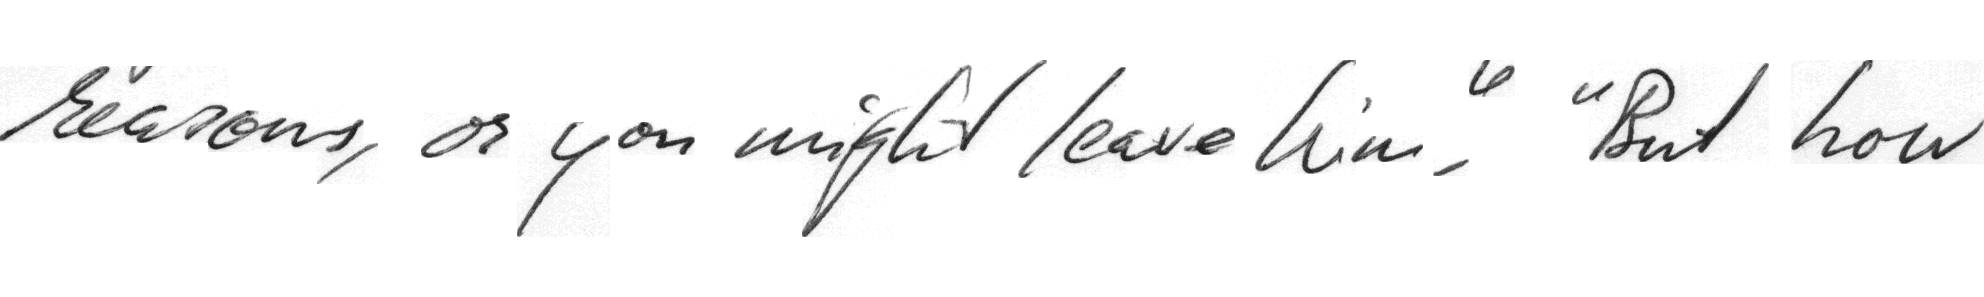 reasons, or you might leave him." "But how